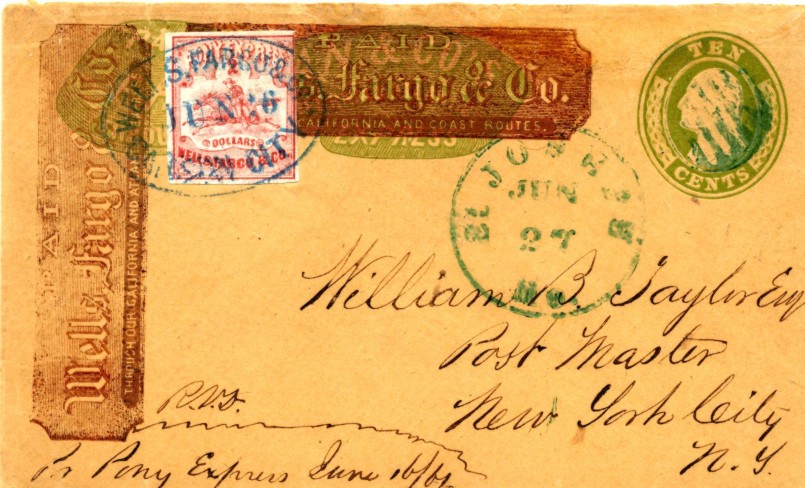 PAID
Wells, Fargo & Co.
THROUGH OUR CALIFORNIA AND
PAID
Fargo & Co.
CALIFORNIA AND COAST ROUTES.
EXPRESS
WELLS, FARGO & CO
JUN 26
CITY
DOLLARS
WELLS FARGO & CO.
TEN
CENTS
ST JOSEPH
JUN
27
Mo.
William B Taylor Esq
Post Master
New York City
N. Y.
Pr Pony Express June 16/61